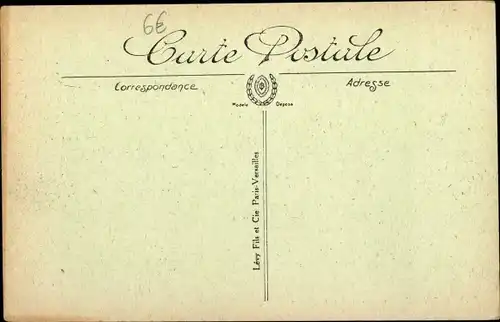 6€
Carte Postale
Correspondance
Adresse
Modèle Déposé
Lévy Fils et Cie Paris-Versailles